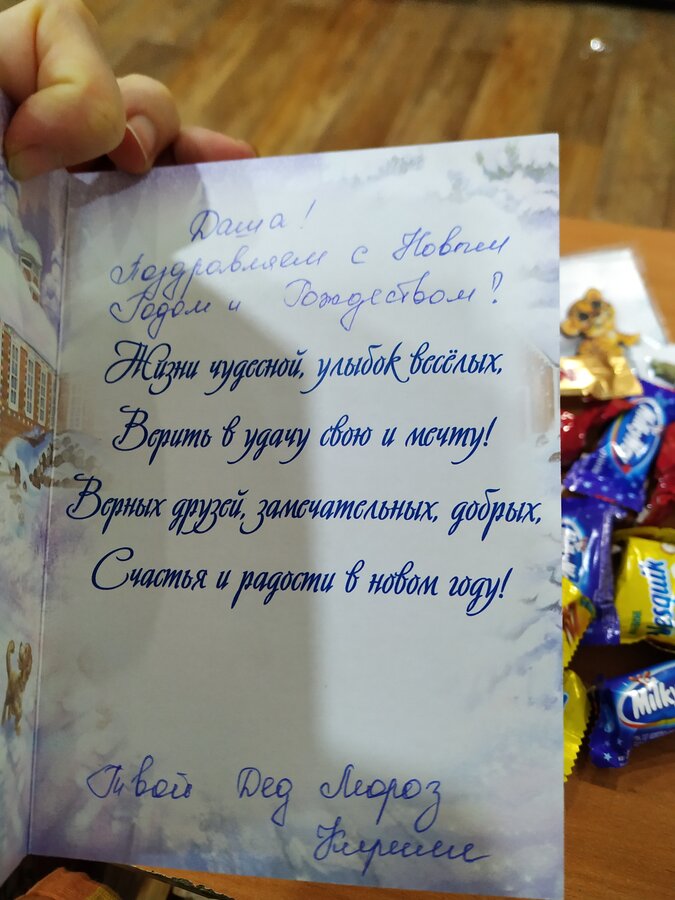 Даша!
Поздравляем с Новым
Годом и Рождеством!
Жизни чудесной, улыбок весёлых,
Верить в удачу свою и мечту!
Верных друзей, замечательных, добрых,
Счастья и радости в новом году!
Твой Дед Мороз
Milky
Nesquik
Milky